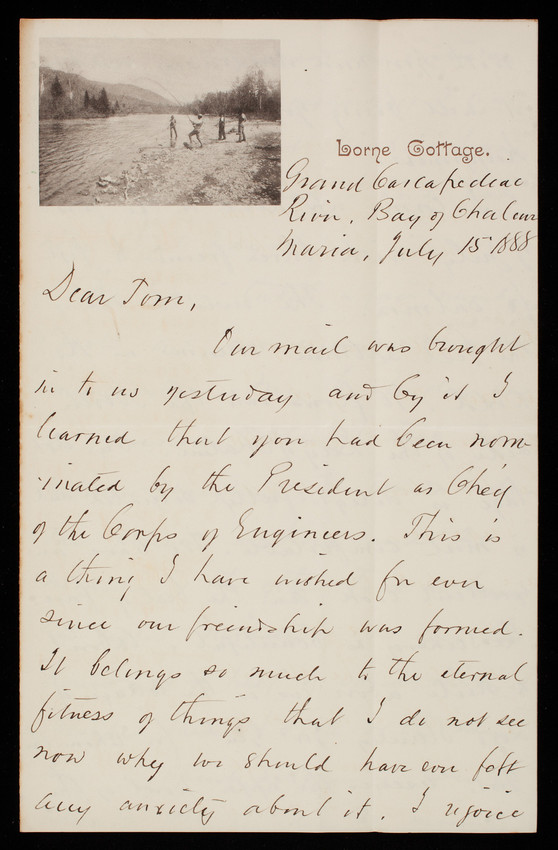 Lorne Cottage.
Grand Cascapediac
River, Bay of Chaleur
Maria, July 15 1888
Dear Tom,
Our mail was brought
in to us yesterday and by it I
learned that you had been nom-
-inated by the President as Chief
of the Corps of Engineers. This is
a thing I have wished for ever
since our friendship was formed.
It belongs so much to the eternal
fitness of things that I do not see
now why we should have ever felt
any anxiety about it. I rejoice